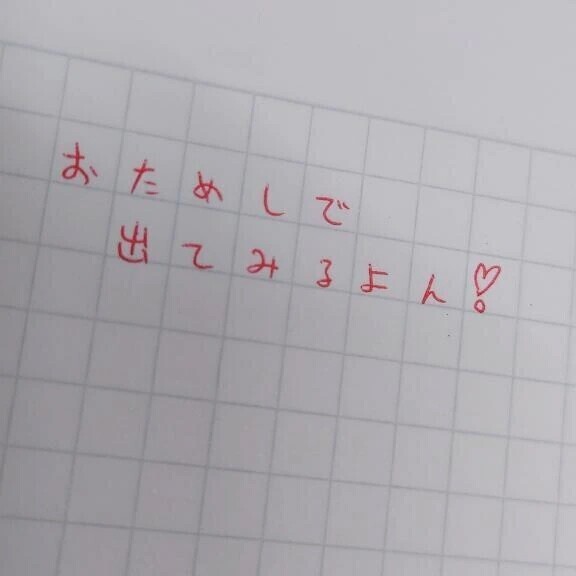 おためしで
出てみるよん!